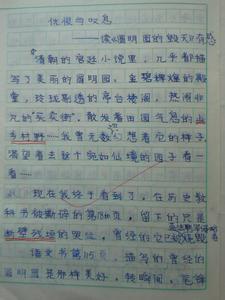 忧恨与叹息
——读《圆明园的毁灭》有感
清朝的宫廷小院里，几乎都描
写了美丽的圆明园，金碧辉煌的殿
堂，玲珑剔透的亭台楼阁，热闹非
凡的“买卖街”，散发着田园气息的山
乡村野……我曾无数幻想着它的样子，
渴望着去这个宛如仙境的园子看一
看……
现在我终于看到了，在历史教
科书被撕碎的第186页，留下的只是
断壁残垣的哭泣，曾经的它已被烧毁
语文书第115页，描写的曾经的
圆明园是那样美好，转瞬间，笔锋